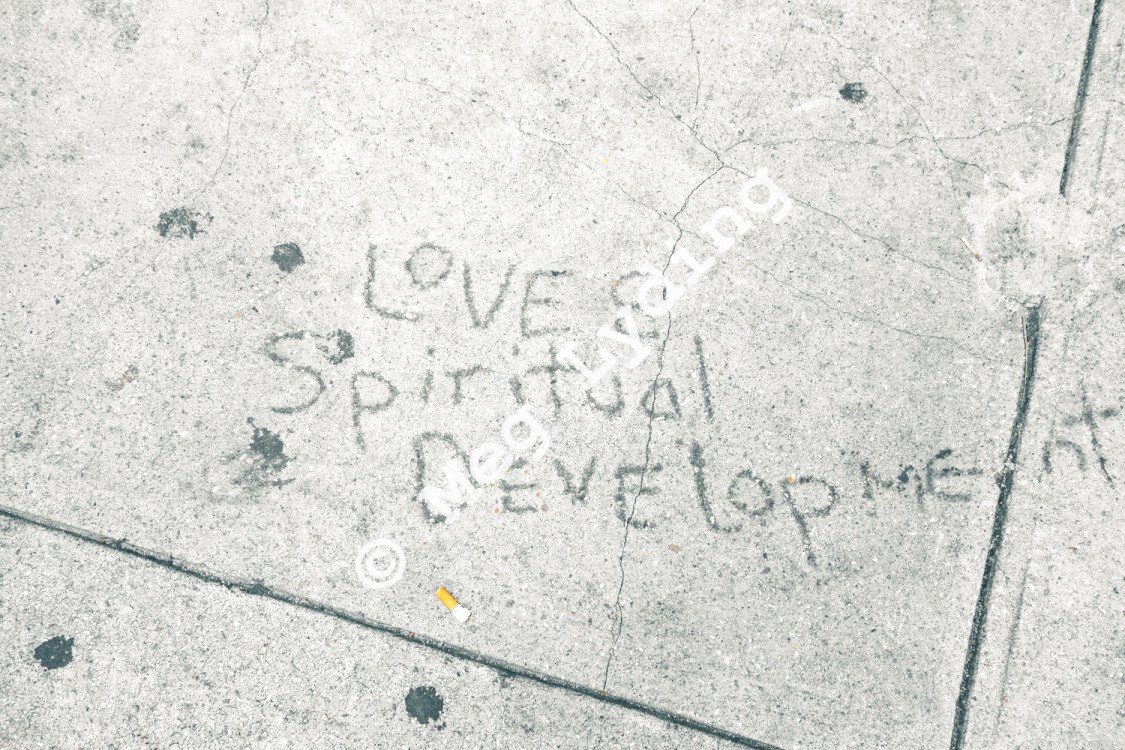 LOVE &
Spiritual
DEVElopMEnt
© Meg Lyding